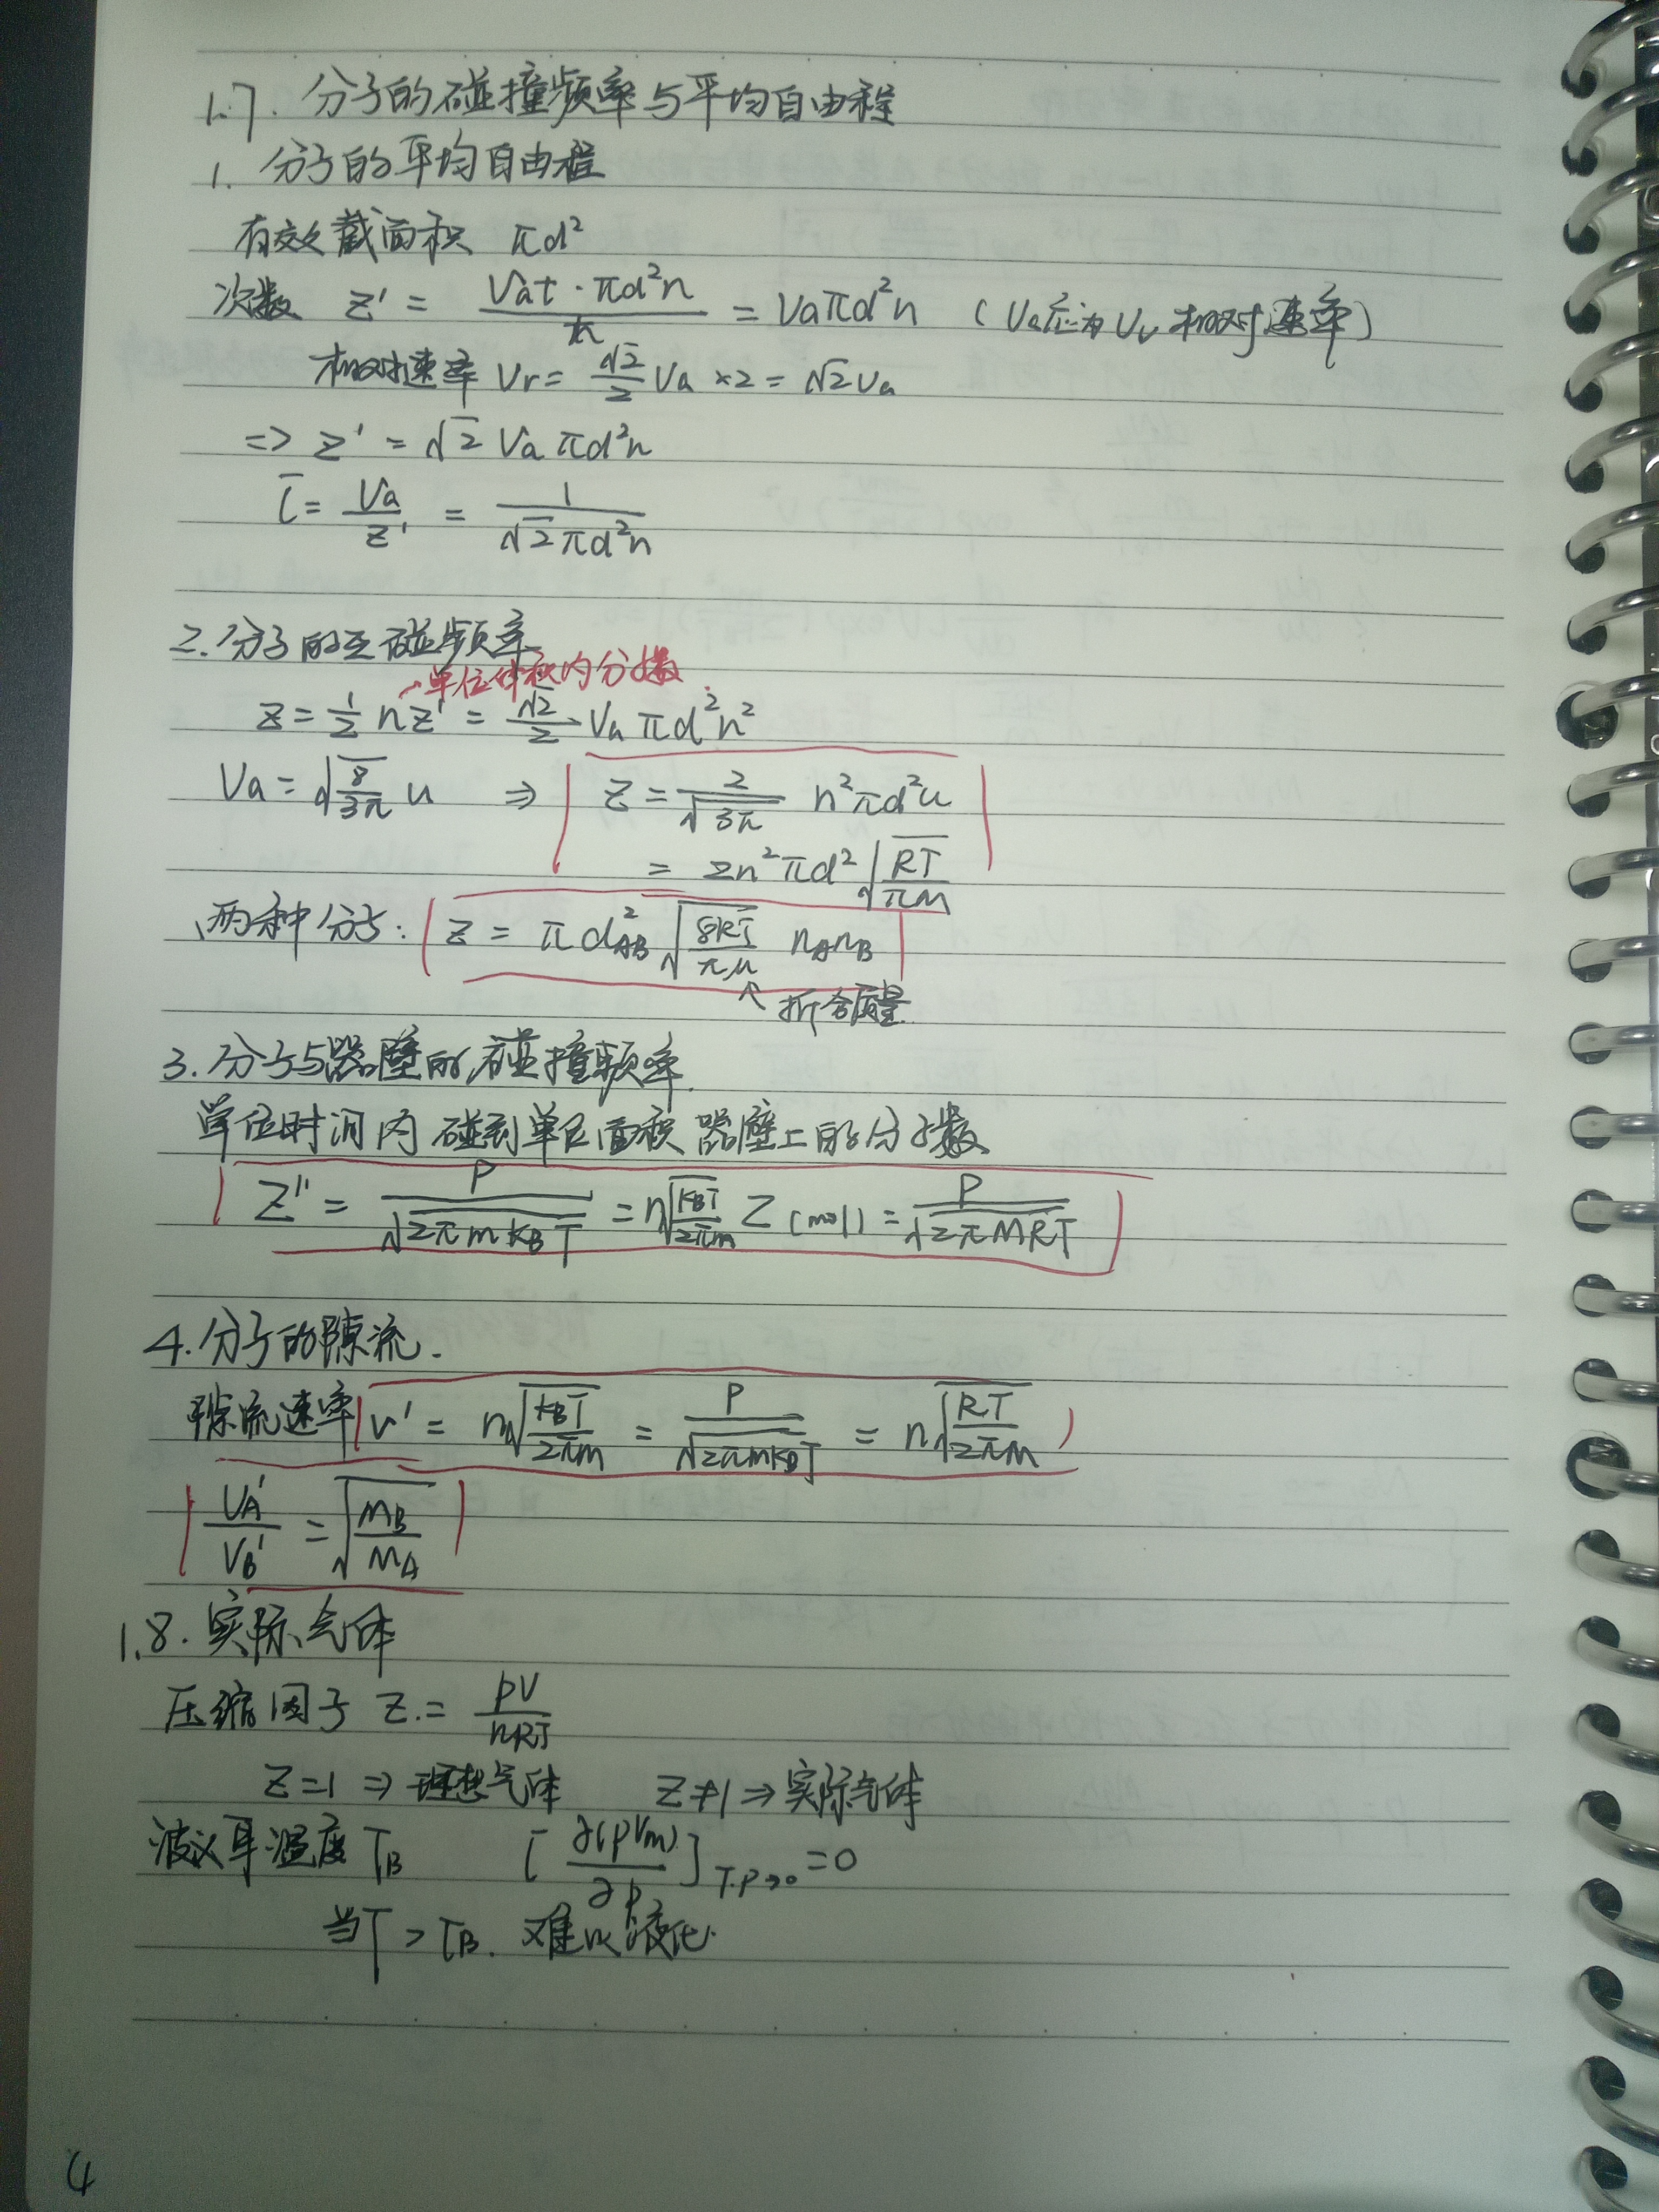 1.7. 分子的碰撞频率与平均自由程
1. 分子的平均自由程
有效截面积 πd²
次数 z' = Vat·πd²n / t = Vaπd²n (Va应为Vr 相对速率)
相对速率 Vr = √2/2 Va ×2 = √2Va
=> z' = √2 Va πd²n
l̄ = Va/z' = 1/(√2πd²n)
2. 分子的互碰频率
单位体积内分子数
z = 1/2 nz' = √2/2 Va πd²n²
Va = √(8/3π) u ⇒ z = 2/√(3π) n²πd²u
= 2n²πd² √(RT/πM)
两种分子: z = πd²AB √(8RT/πμ) nAnB
↖ 折合质量
3. 分子与器壁的碰撞频率.
单位时间内碰到单位面积器壁上的分子数
Z'' = P/√(2πmkBT) = n√(kBT/2πm) Z(mol) = P/√(2πMRT)
4. 分子的隙流.
隙流速率 v' = n√(kBT/2πm) = P/√(2πmkBT) = n√(RT/2πM)
VA'/VB' = √(MB/MA)
1.8. 实际气体
压缩因子 Z = pV/nRT
Z=1 ⇒ 理想气体 Z≠1 ⇒ 实际气体
波义耳温度 TB [∂(pVm)/∂p]T.P→0 = 0
当T > TB. 难以液化.
4